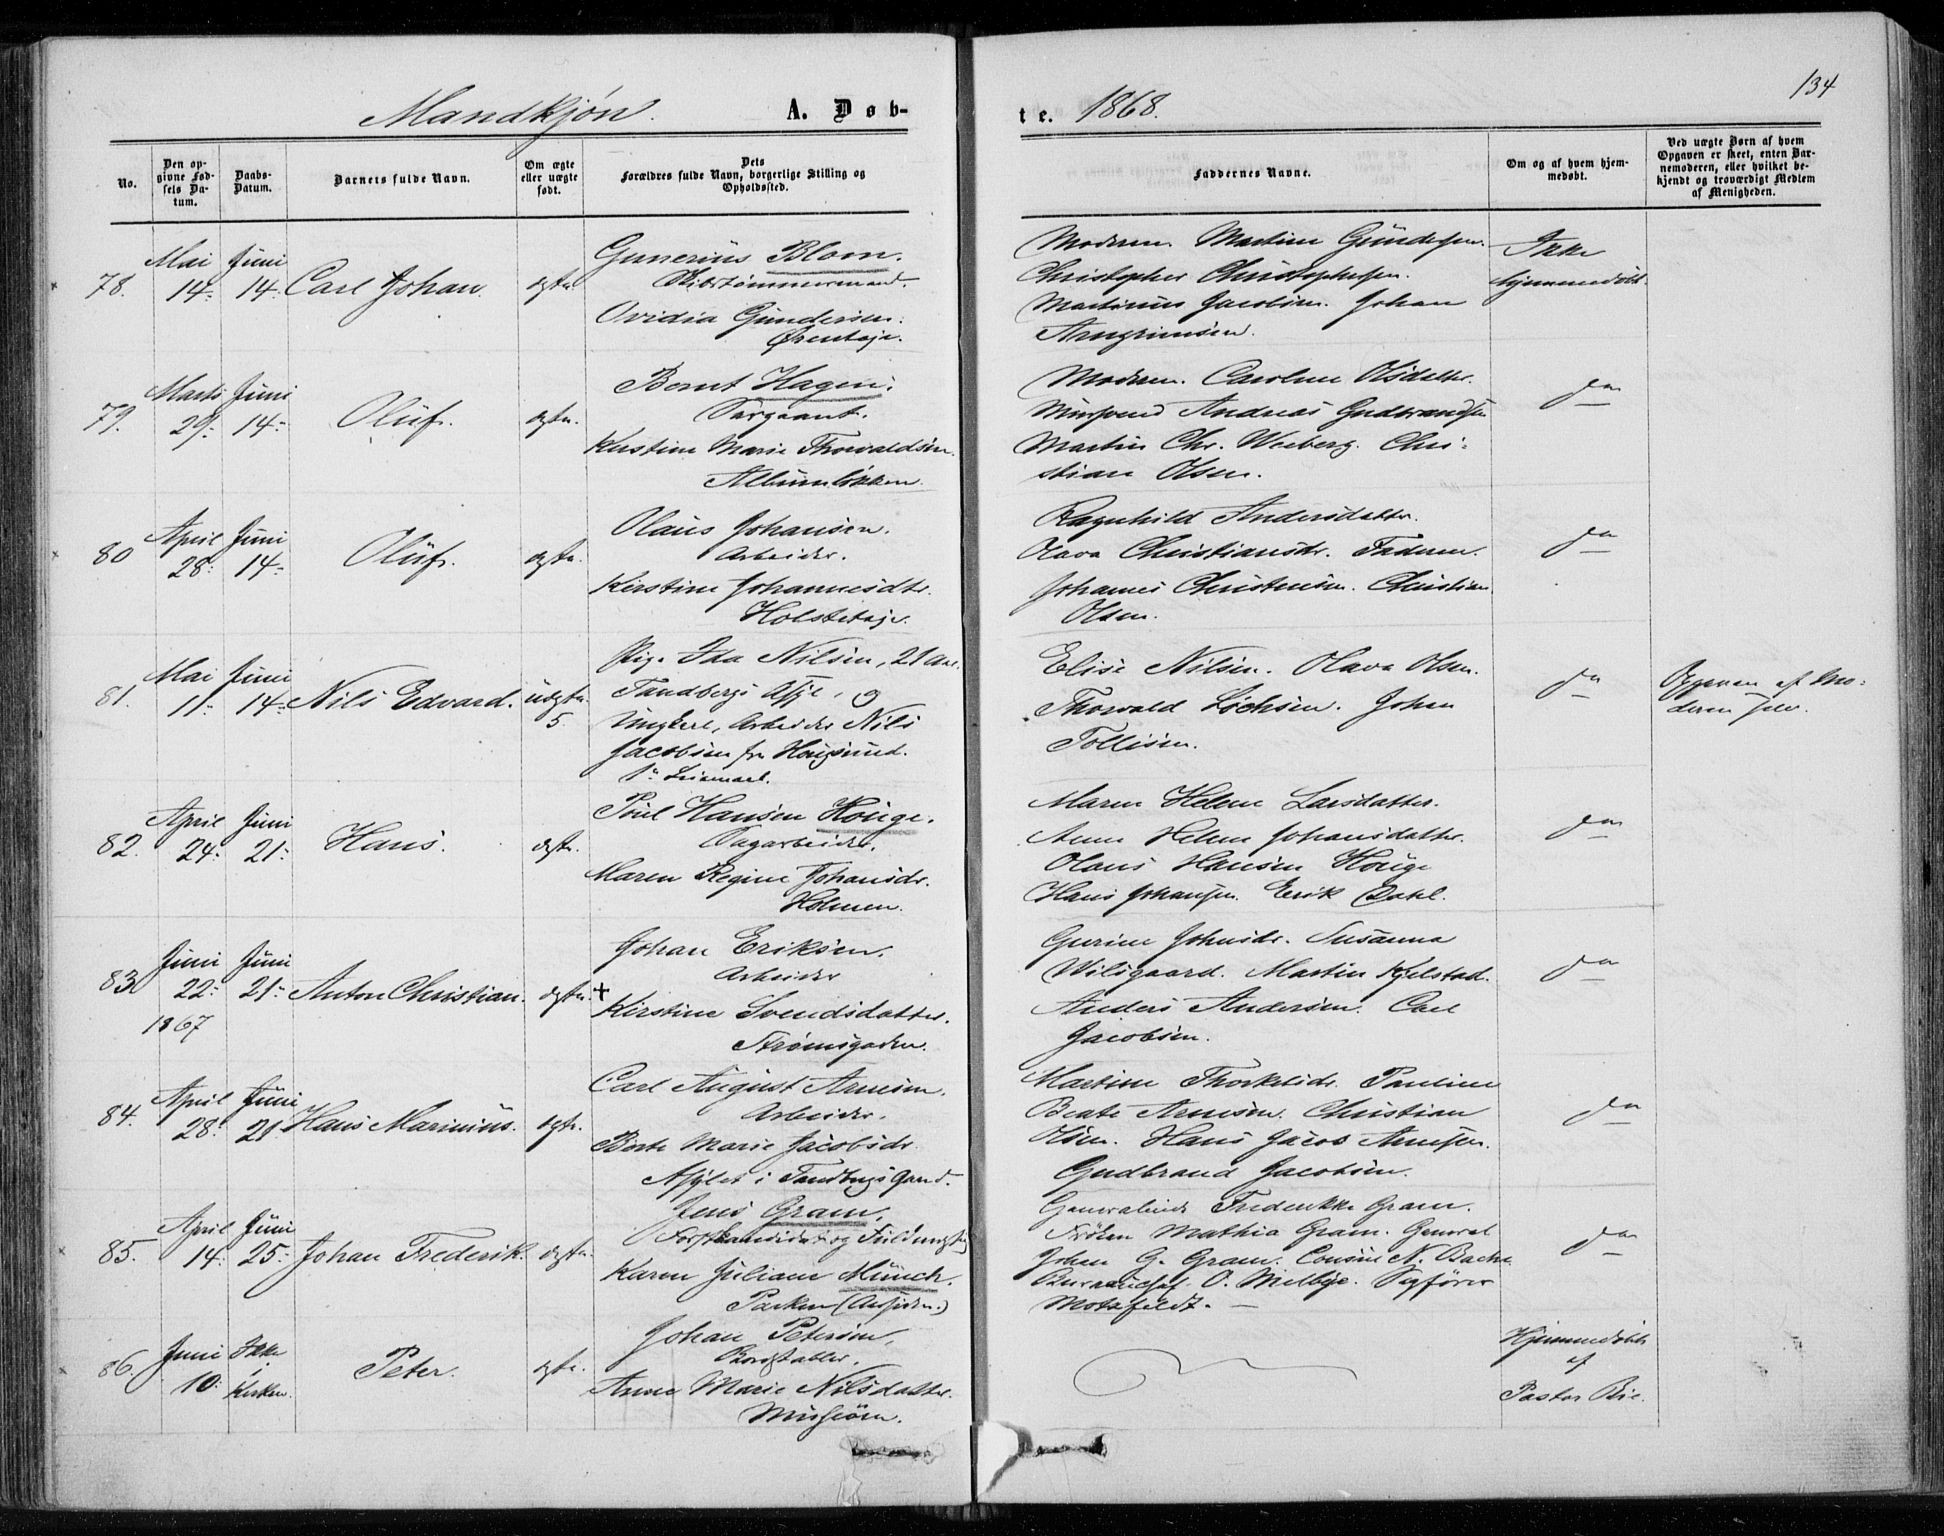 134
Mandkjøn. A. Døb-
te. 1868.
No.
Den op-
givne Fød-
sels Da-
tum.
Daabs-
Datum.
Barnets fulde Navn.
Om ægte
eller uægte
født.
Dets
Forældres fulde Navn, borgerlige Stilling og
Opholdssted.
Faddernes Navne.
Om og af hvem hjem-
medøbt.
Ved uægte Børn af hvem
Opgaven er skeet, enten Bar-
nemoderen, eller hvilket be-
kjendt og troværdigt Medlem
af Menigheden.
78.
Mai
14.
Juni
14.
Carl Johan.
ægte.
Gunerius Blom.
Skibstømmermand.
Ovidia Gundersen.
Ørentøje.
Moderen. Martine Gundersen.
Christopher Christophersen.
Martinus Jacobsen. Johan
Arngrimsen.
Ikke
hjemmedøbt.
79.
Marts
29.
Juni
14.
Oluf.
ægte.
Bernt Hagen.
Sargeant.
Kirstine Marie Thorvaldsen.
Albumløkken.
Moderen. Caroline Olsdatter.
Andreas Gudbrandsen
Martin Chr. Weeberg. Chri-
stian Olsen.
do
80
April
28.
Juni
14.
Oluf.
ægte.
Olaus Johansen.
Arbeider.
Kirstine Johannesdtr.
Holstetøje.
Ragnhild Andersdatter.
Olava Christiansdr. Faderen.
Johannes Christensen. Christian
Olsen.
do
81.
Mai
11.
Juni
14.
Nils Edvard.
uægte.
5
Pige Ida Nilsen, 21 Aar.
Tandbergs Asyl, og
Ungkarl, Arbeider Nils
Jacobsen fra Hougsund.
Elise Nilsen. Olava Olsen.
Thorvald Lochsen. Johan
Tollisen.
do
Opgaven af Mo-
deren selv.
82.
April
24.
Juni
21.
Hans.
ægte.
Poul Hansen Houge.
Sagarbeider.
Maren Regine Johansdr.
Holmen.
Maren Helene Larsdatter.
Anne Helene Johansdatter.
Olaus Hansen Houge
Hans Johansen. Erik Dahl.
do
83
Juni
22.
1867
Juni
21.
Anton Christian.
ægte. +
Johan Eriksen.
Arbeider
Kirstine Svendsdatter.
Strømsgaden.
Gurine Johnsdr. Susanna
Wilsgaard. Martin Kjelstad.
Anders Andersen. Carl
Jacobsen.
do
84.
April
28.
Juni
21.
Hans Marinius.
ægte.
Carl August Arnesen.
Arbeider.
Berte Marie Jacobsdr.
Asylet i Tandbergs Gaard.
Martine Thorkelsdr. Pauline
Beate Arnesen. Christian
Olsen. Hans Jacob Arnesen.
Gudbrand Jacobsen.
do
85.
April
14.
Juni
25.
Johan Frederik.
ægte.
Jens Gram.
Forstkandidat og
Karen Juliane Münch.
Parken
Generalinde Frederikke Gram.
Frøken Mathia Gram. General
Johan G. Gram. Consul N. Bache
O. Mellbye. Sagfører
Motzfeldt.
do
86.
Juni
10.
Ikke
i
Kirken.
Peter.
ægte.
Johan Petersen,
Bordstabler.
Anne Marie Nilsdatter.
Hjemmedøbt
af
Pastor Bie.